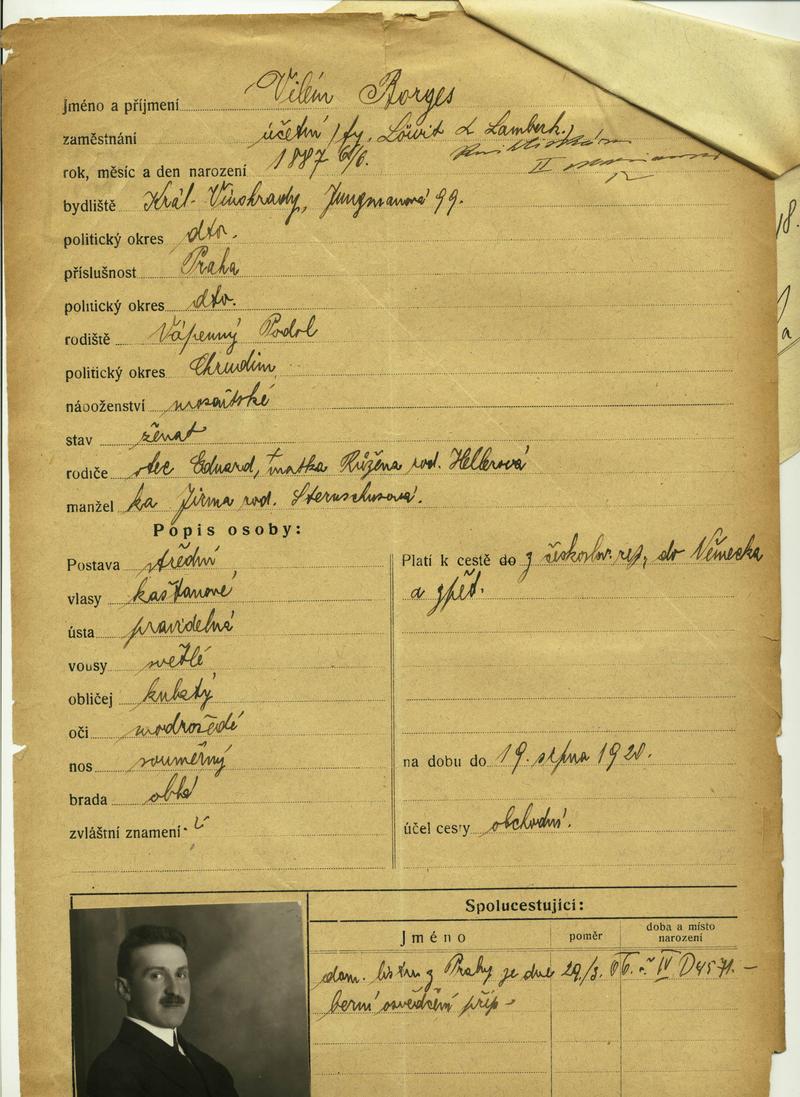 Jméno a příjmení Vilém Borges
zaměstnání účetní fy. Löwit & Lamberk.
rok, měsíc a den narození 1887 6/6.
II
bydliště Král. Vinohrady, Jungmanová 99.
politický okres dto.
příslušnost Praha
politický okres dto.
rodiště Vápenný Podol
politický okres Chrudim
náboženství mosaitské
stav ženat
rodiče otec Eduard, † matka Růžena rod. Hellerová
manžel ka Irma rod.
Popis osoby:
Postava střední
vlasy kaštanové
ústa pravidelná
vousy světlé
obličej kulatý
oči modrošedé
nos souměrný
brada oblá
zvláštní znamení
Platí k cestě do z českoslov. rep. do Německa
a zpět.
na dobu do 19. srpna 1920.
účel cesty obchodní.
Spolucestující:
Jméno poměr doba a místo narození
dom. listu z Prahy je dne 29./3. IV
berní osvědčení příp
18.
a